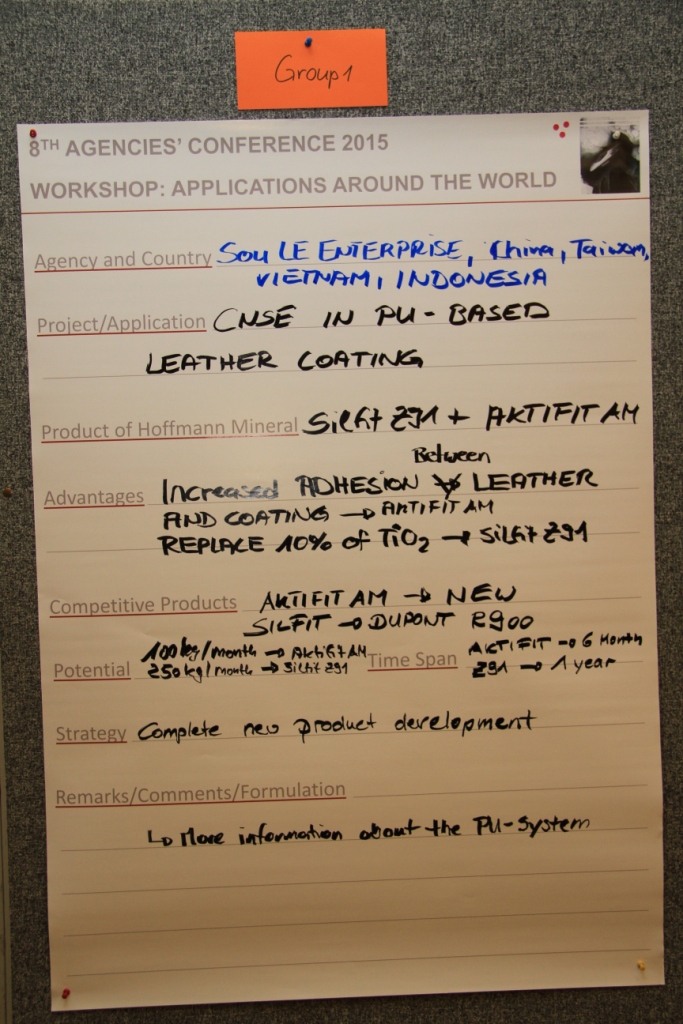 Group 1
8TH AGENCIES' CONFERENCE 2015
WORKSHOP: APPLICATIONS AROUND THE WORLD
Agency and Country Sou LE ENTERPRISE, China, Taiwan,
VIETNAM, INDONESIA
Project/Application CNSE IN PU-BASED
LEATHER COATING
Product of Hoffmann Mineral Silfit Z91 + AKTIFIT AM
Between
Advantages Increased ADHESION LEATHER
AND COATING → AKTIFIT AM
REPLACE 10% of TiO2 → Silfit Z91
Competitive Products AKTIFIT AM → NEW
SILFIT → DUPONT R900
Potential 100kg/month → Aktifit AM Time Span AKTIFIT → 6 Month
250kg/month → Silfit Z91 Z91 → 1 year
Strategy Complete new product development
Remarks/Comments/Formulation
↳ More information about the PU-System